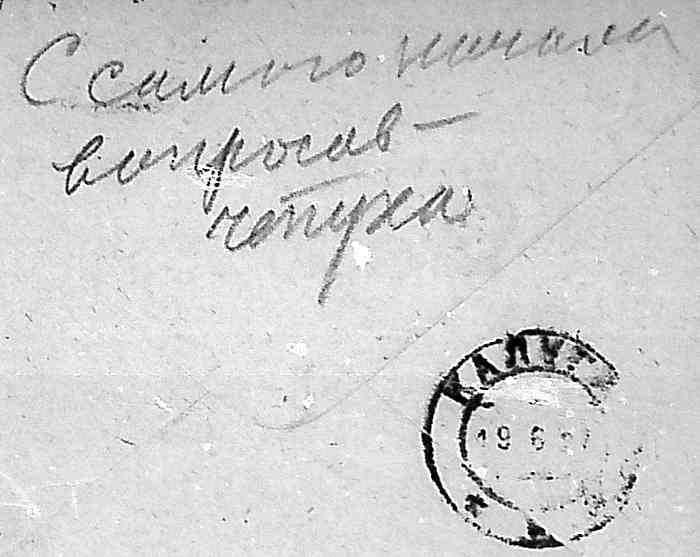 С самого начала
вопросов —
чепуха
КАЛУГА
19 6